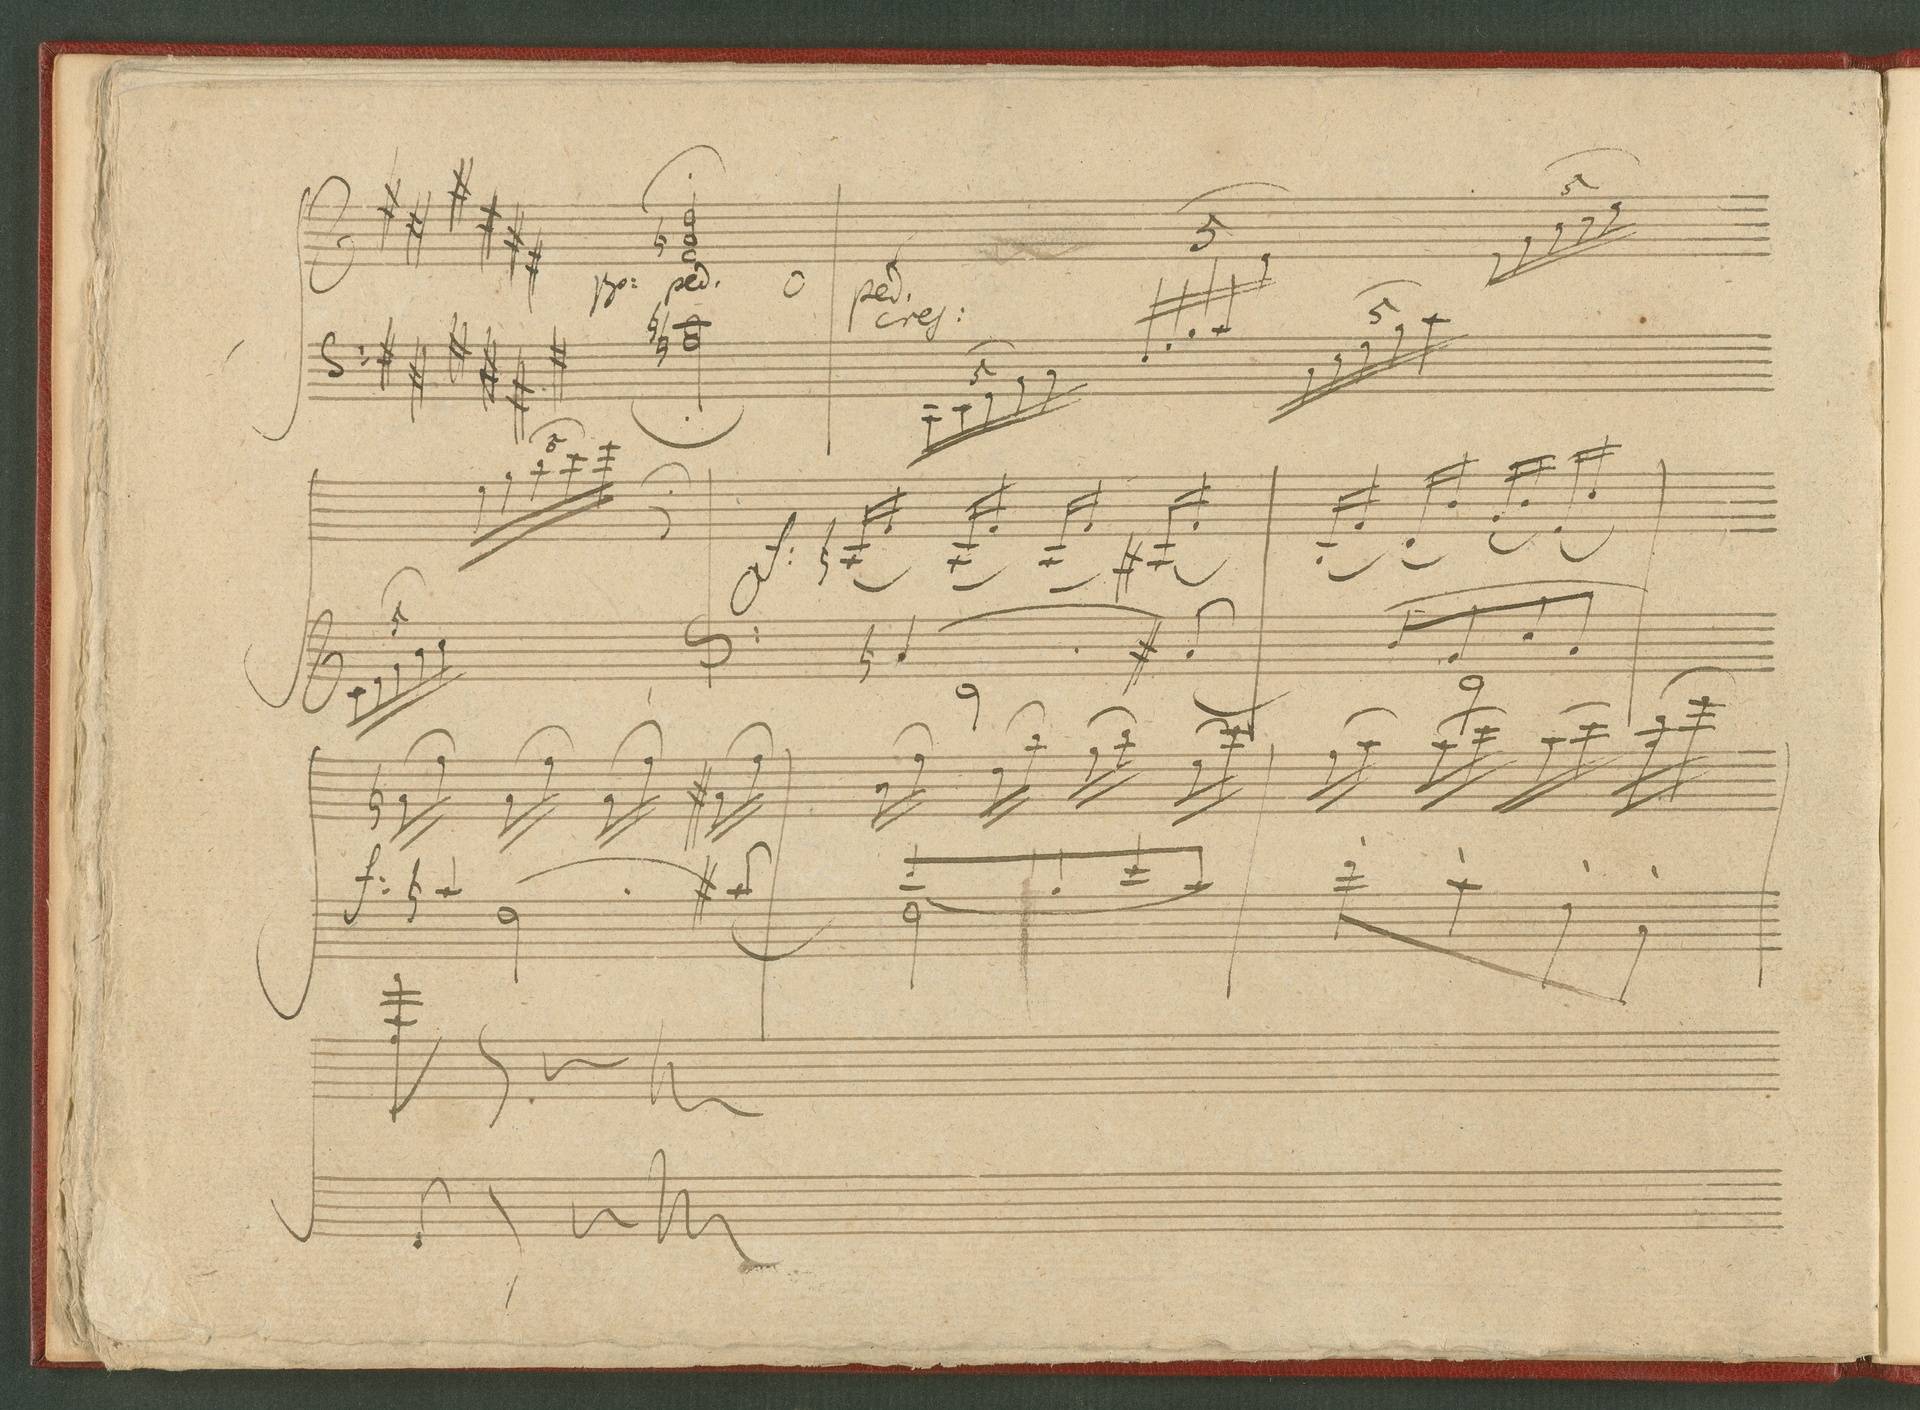 pp: ped. O ped.
cres:
5
5
5
5
5
f:
5
f: